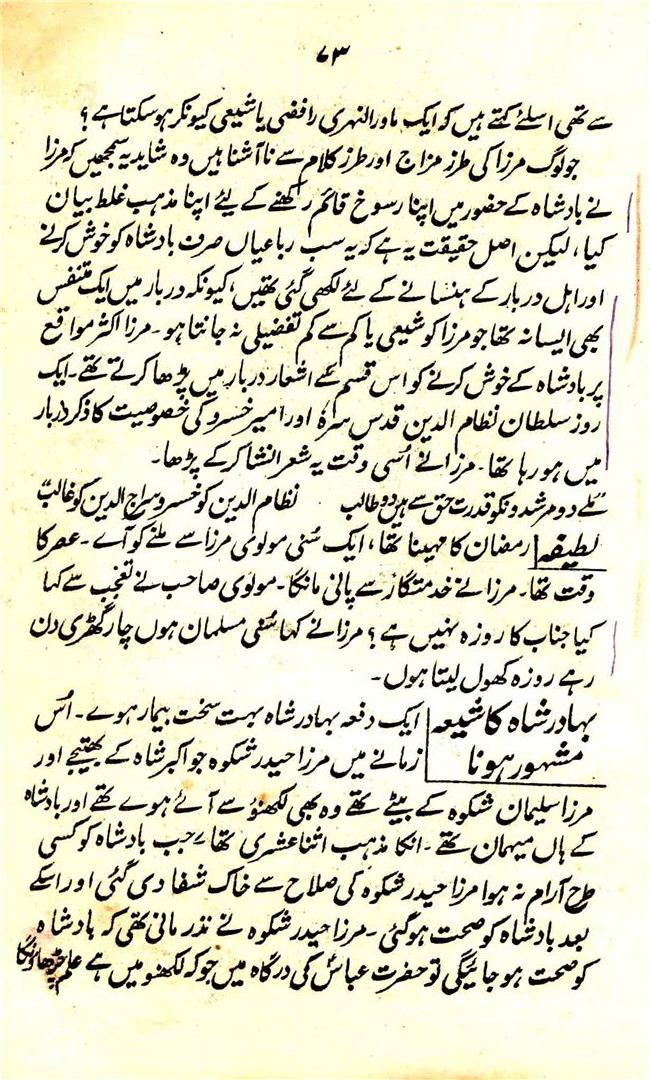 ۷۳
سے تھی اسلئے کہتے ہیں کہ ایک ماوراالنہری رافضی یا شیعی کیونکر ہو سکتا ہے ؟
جو لوگ مرزا کی طرز مزاج اور طرز کلام سے نا آشنا ہیں وہ شاید یہ سمجھیں کہ مرزا
نے بادشاہ کے حضور میں اپنا رسوخ قائم رکھنے کے لیئے اپنا مذہب غلط بیان
کیا، لیکن اصل حقیقت یہ ہے کہ یہ سب رباعیاں صرف بادشاہ کو خوش کرنے
اور اہل دربار کے ہنسانے کے لئے لکھی گئی تھیں، کیونکہ دربار میں ایک متنفس
بھی ایسا نہ تھا جو مرزا کو شیعی یا کم سے کم تفضیلی نہ جانتا ہو۔ مرزا اکثر مواقع
پر بادشاہ کے خوش کرنے کو اس قسم کے اشعار دربار میں پڑھا کرتے تھے۔ ایک
روز سلطان نظام الدین قدس سرہٗ اور امیر خسرو کی خصوصیت کا ذکر دربار
میں ہو رہا تھا۔ مرزا نے اُسی وقت یہ شعر انشا کر کے پڑھا۔
ملے دو مرشدونکو قدرت حق سے ہیں دو طالب نظام الدین کو خسرو سراج الدین کو غالب
لطیفہ رمضان کا مہینا تھا، ایک سُنی مولوی مرزا سے ملنے کو آے۔ عصر کا
وقت تھا۔ مرزا نے خدمتگار سے پانی مانگا۔ مولوی صاحب نے تعجب سے کہا
کیا جناب کا روزہ نہیں ہے ؟ مرزا نے کہا سُنی مسلمان ہوں چار گھڑی دن
رہے روزہ کھول لیتا ہوں۔
بہادر شاہ کا شیعہ ایک دفعہ بہادر شاہ بہت سخت بیمار ہوے۔ اُس
مشہور ہونا زمانے میں مرزا حیدر شکوہ جو اکبر شاہ کے بھتیجے اور
مرزا سلیمان شکوہ کے بیٹے تھے وہ بھی لکھنؤ سے آئے ہوے تھے اور بادشاہ
کے ہاں میہمان تھے۔ انکا مذہب اثنا عشری تھا۔ جب بادشاہ کو کسی
طرح آرام نہ ہوا مرزا حیدر شکوہ کی صلاح سے خاک شفا دی گئی اور اسکے
بعد بادشاہ کو صحت ہو گئی۔ مرزا حیدر شکوہ نے نذر مانی تھی کہ بادشاہ
کو صحت ہو جائیگی تو حضرت عباسؑ کی درگاہ میں جو کہ لکھنو میں ہے علم چڑھاؤنگا